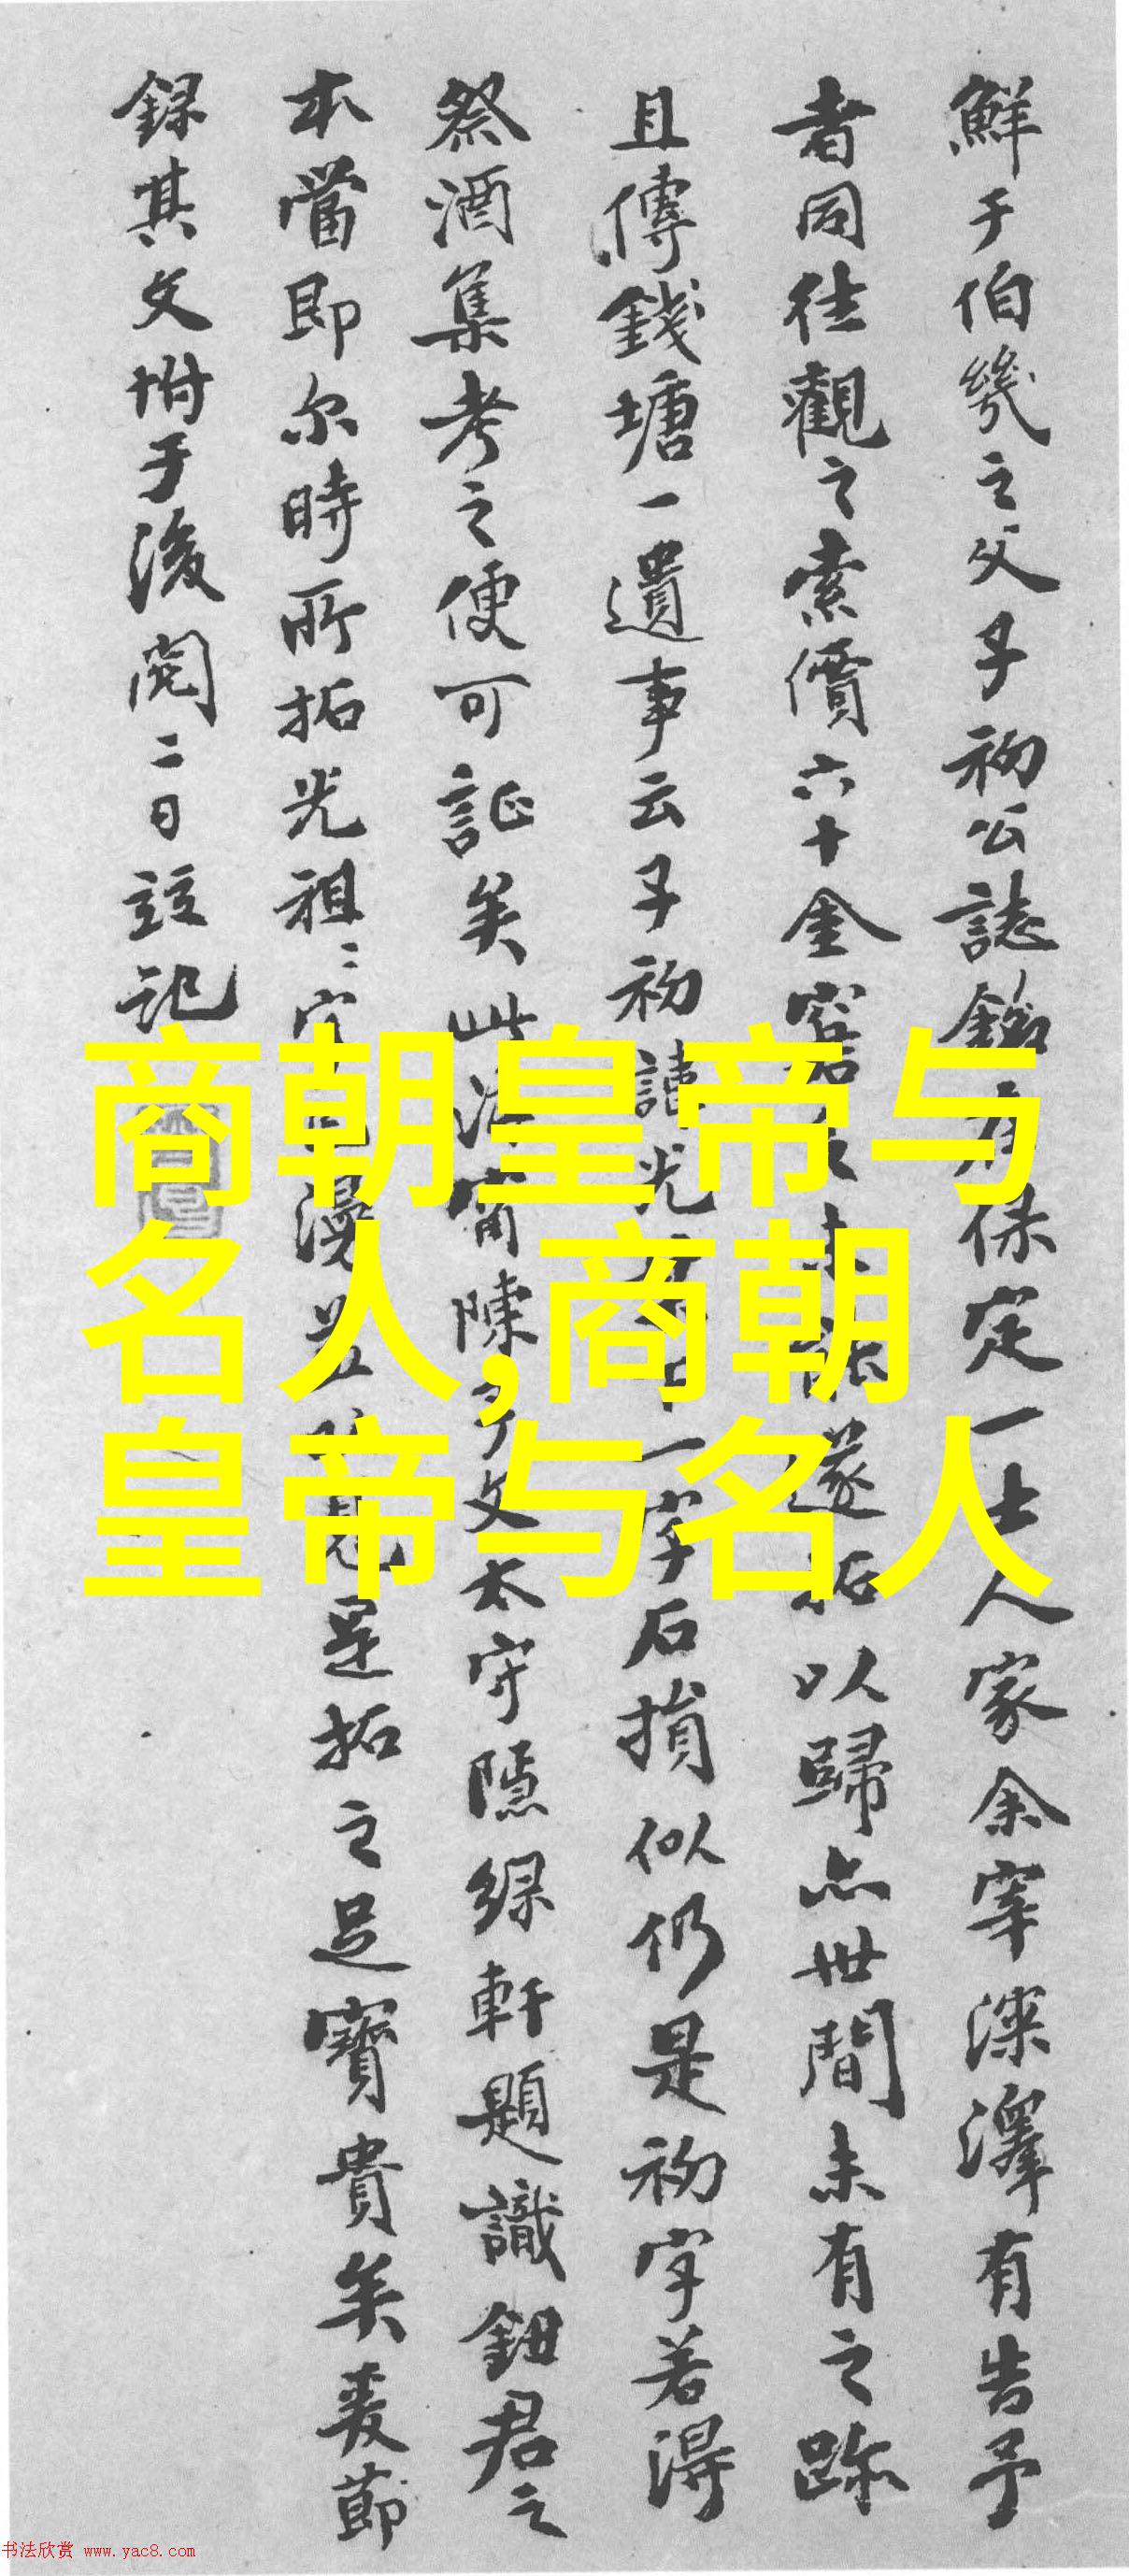 鮮于伯幾之父子初公誌銘在保定一士人家余宰深澤有告予
者同往觀之索價六十金窘未遂拓以歸亦世間未有之跡
且傳錢塘一遺事云子初諱光一字石損似仍是初字若得
祭酒集考之便可証矣此陳太守隱綠軒題識鈕君之
本當即尔時所拓光祖二字漫是拓之足寶貴矣爰節
錄其文坿于後閱二日記
商朝皇帝与
名人,商朝
皇帝与名人
书法欣赏 www.yac8.com